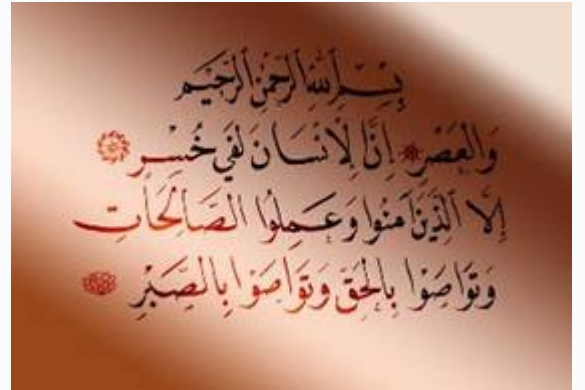 بِسْمِ اللهِ الرَّحْمٰنِ الرَّحِيْمِ
وَالْعَصْرِ إِنَّ الْإِنْسَانَ لَفِي خُسْرٍ
إِلَّا الَّذِينَ آمَنُوا وَعَمِلُوا الصَّالِحَاتِ
وَتَوَاصَوْا بِالْحَقِّ وَتَوَاصَوْا بِالصَّبْرِ